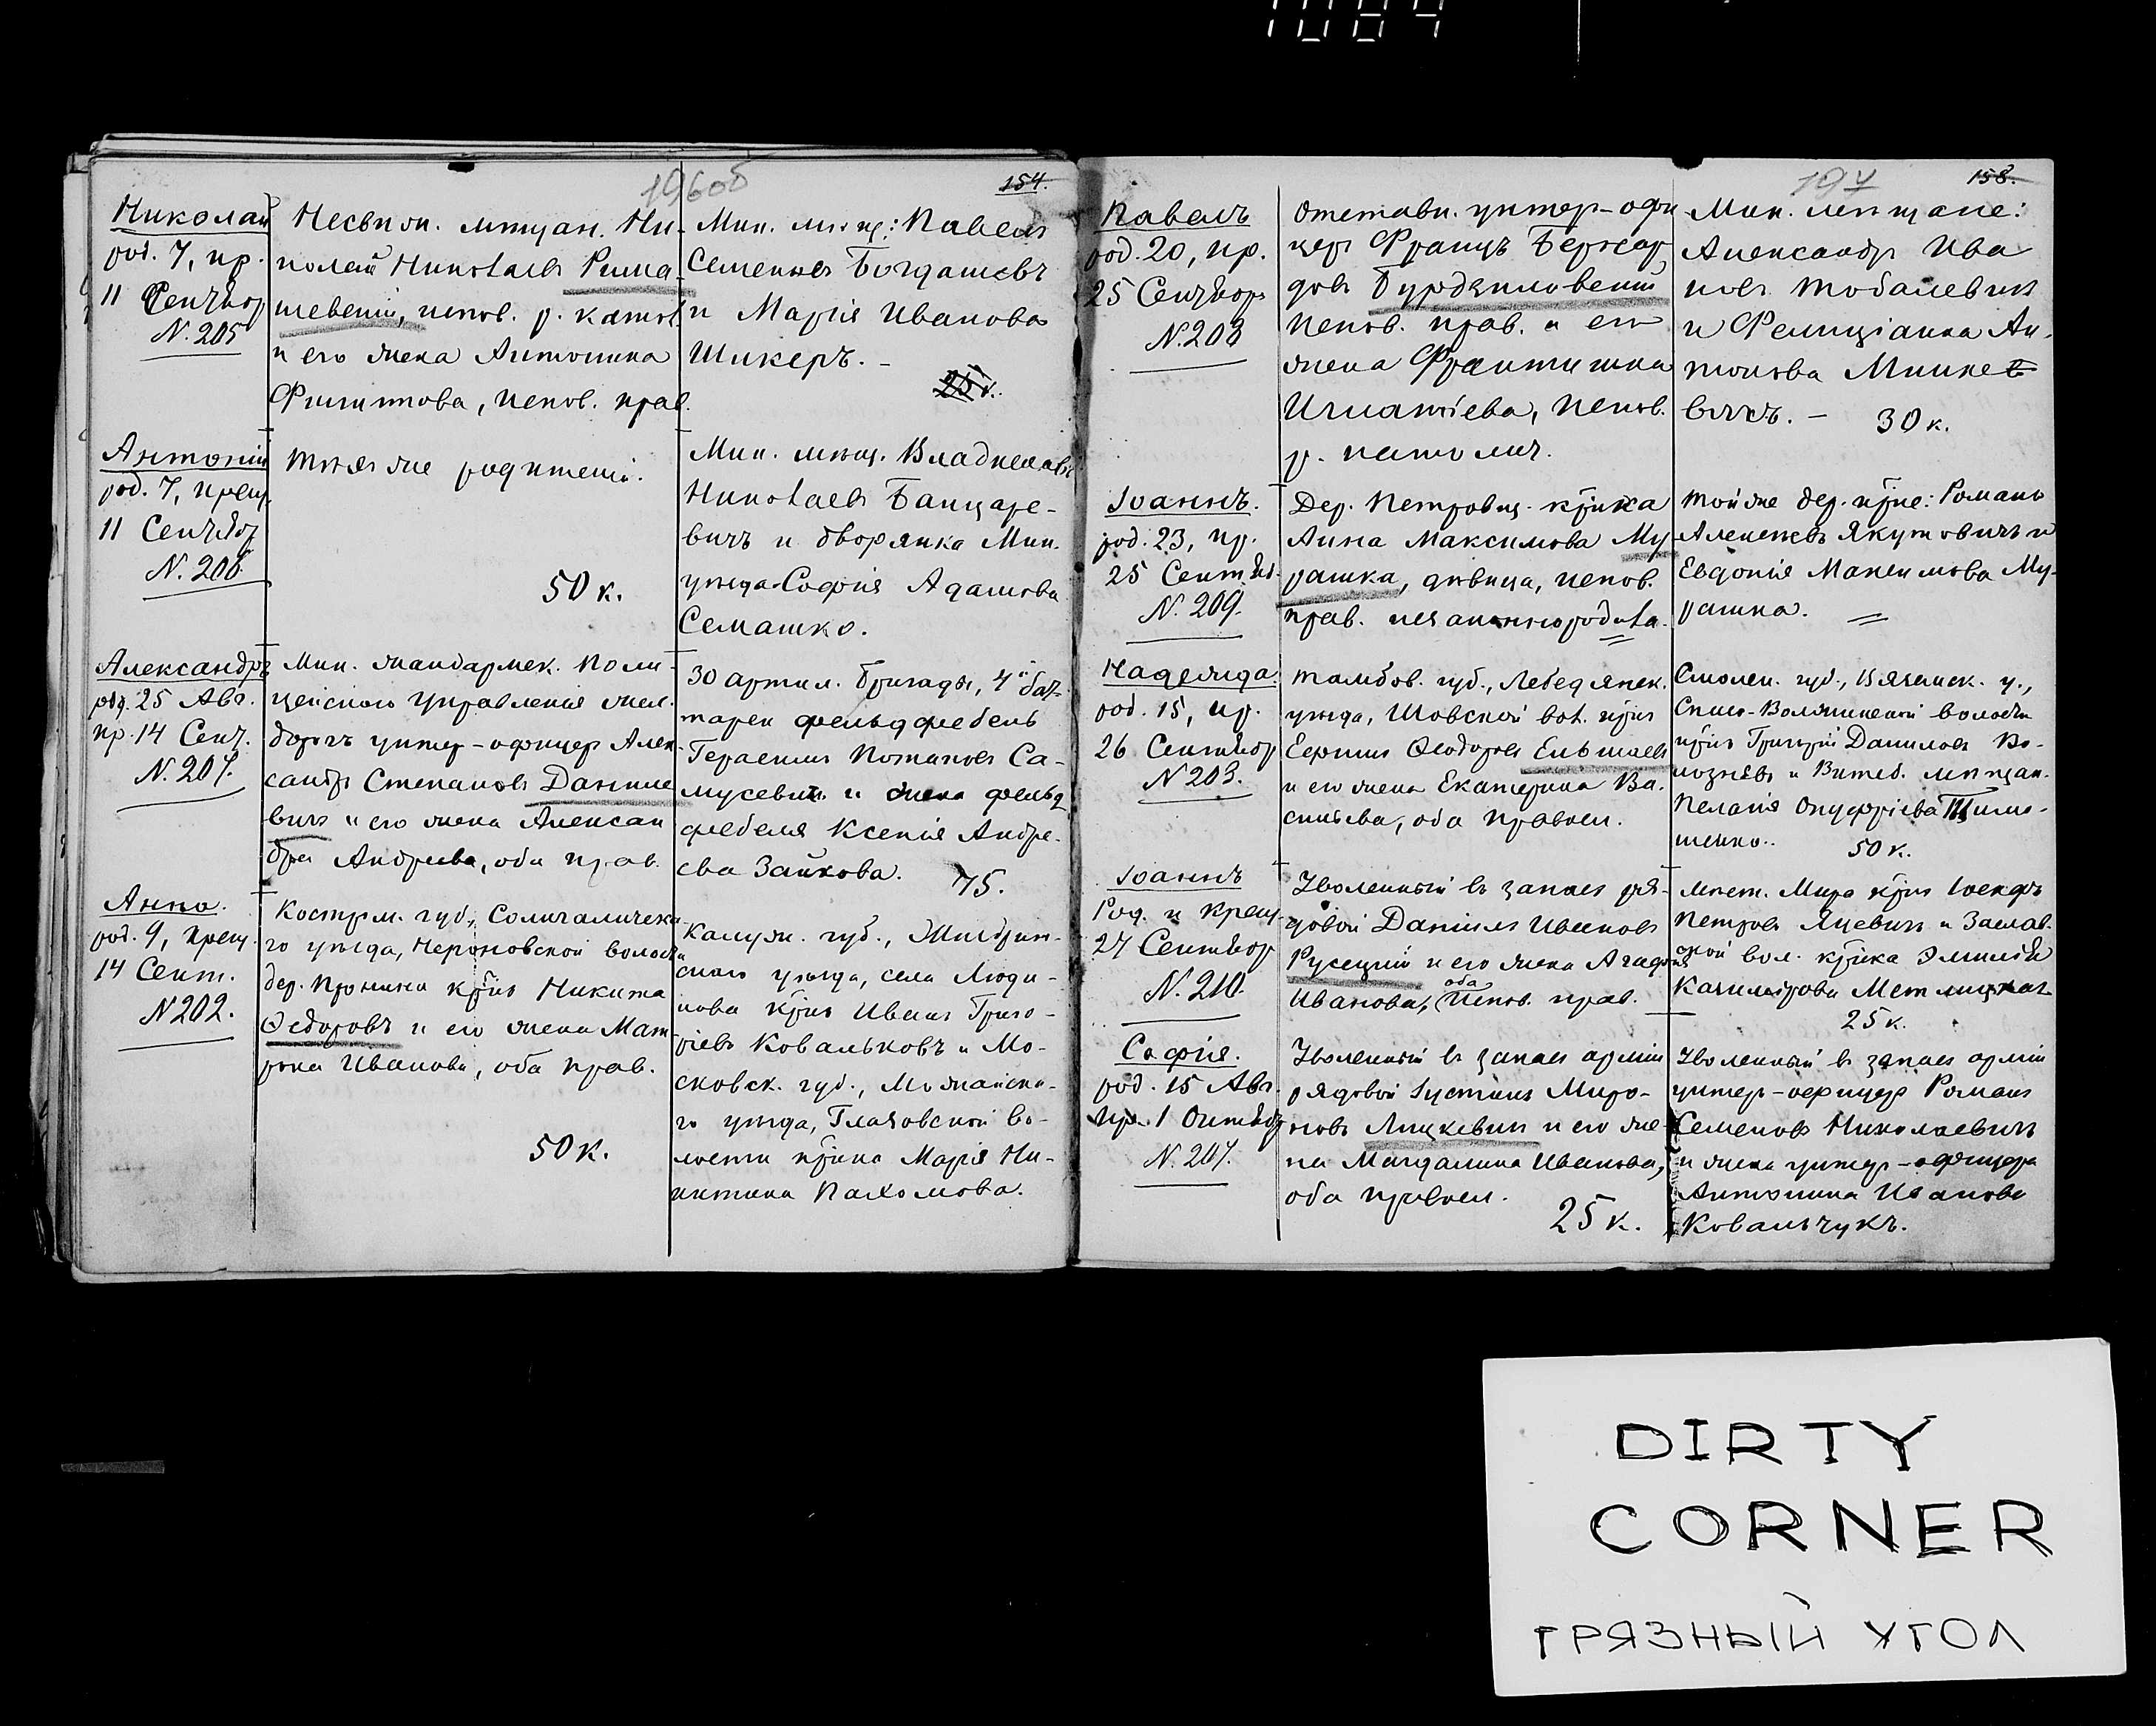 1084
196об
154.
Николай
род. 7, кр.
11 Сентбр
N. 205
Несвиж. мѣщан. Ни-
колай Николаевъ Рима-
шевскій, испов. р. катол.
и его жена Антонина
Филиппова, испов. прав.
Мин. мѣщ.: Павелъ
Семеновъ Богдашевъ
и Марія Иванова
Шикеръ. –
25 к.
Антоній
род. 7, крещ.
11 Сентбр
N. 206
Тѣхъ же родителей.
50 к.
Мин. мѣщ. Владиславъ
Николаевъ Банцаре-
вичъ и дворянка Мин.
уѣзда София Адамова
Семашко.
Александръ
род. 25 Авг.
кр. 14 Сент.
N. 207.
Мин. жандармск. поли-
цейскаго Управленія жел.
дорогъ унтер-офицеръ Алек-
сандръ Степановъ Даниле
вичъ и его жена Алексан
дра Андреева, оба прав.
30 артил. бригады, 4й бат-
тареи фельдфебель
Герасимъ Потаповъ Са-
мусевичъ и жена фельд
фебеля Ксенія Андре-
ева Зайкова.
75.
Анна.
род. 9, крещ.
14 Сент.
N 202.
Костром. губ., Солигаличска-
го уѣзда, Нероновской волости
дер. Пронина крнъ Никита
Ѳедоровъ и его жена Мат
рона Иванова, оба прав.
50 к.
Калуж. губ., Жиздрин-
скаго уѣзда, села Люди-
нова крнъ Иванъ Григо-
ріевъ Ковальковъ и Мо-
сковск. губ., Можайска-
го уѣзда, Глазовской во-
лости крнка Марія Ни-
китина Пахомова.
197
158.
Павелъ
род. 20, кр.
25 Сентбря
N. 208
Отставн. унтер-офи
церъ Францъ Бернар
довъ Бурдзиловскій
испов. прав. и его
жена Франтишка
Игнатіева, испов.
р. католич.
Мин. мѣщане:
Александръ Ива
новъ Тобалевичъ
и Фелиціанна Ан-
тонова Минке
вичъ. – 30 к.
Іоаннъ.
род. 23, кр.
25 Сентбр.
N. 209.
Дер. Петровщ. крнка
Анна Максимова Му
рашка, дѣвица, испов.
прав. незаконнородила.
Той же дер. крне: Романъ
Алексѣевъ Якутовичъ и
Евдокія Максимова Му-
рашка.
Надежда.
род. 15, кр.
26 Сентбр
N 203.
Тамбов. губ., Лебедянск.
уѣзда, Шовской вол. крнъ
Ефимъ Ѳеодоровъ
и его жена Екатерина Ва-
сильева, оба правосл.
Смолен. губ., Вяземск. у.,
волости
крнъ Григорій Даниловъ Во-
и Витеб. мѣщан.
Пелагія Онуфріева Тимо-
шенко.
50 к.
Іоаннъ
Род. и крещ.
27 Сентбр
N. 210.
Уволенный въ запасъ ря-
довой Даніилъ Ивановъ
Русецкій и его жена Агафія
Иванова, оба испов. прав.
Мѣст. Мира крнъ Іосифъ
Петровъ Яцевичъ и Заслав-
ской вол. крнка Эмилія
Казимірова Метлицкая
25 к.
Софія.
род. 15 Авг.
кр. 1 Октбр
N. 207.
Уволенный въ запасъ арміи
рядовой Іустинъ Миро-
новъ Лицкевичъ и его же-
на Магдалина Иванова,
оба правосл.
25 к.
Уволенный въ запасъ арміи
унтер-офицеръ Романъ
Семеновъ Николаевичъ
и жена унтер-офицера
Антонина Иванова
Ковальчукъ.
DIRTY
CORNER
ГРЯЗНЫЙ УГОЛ